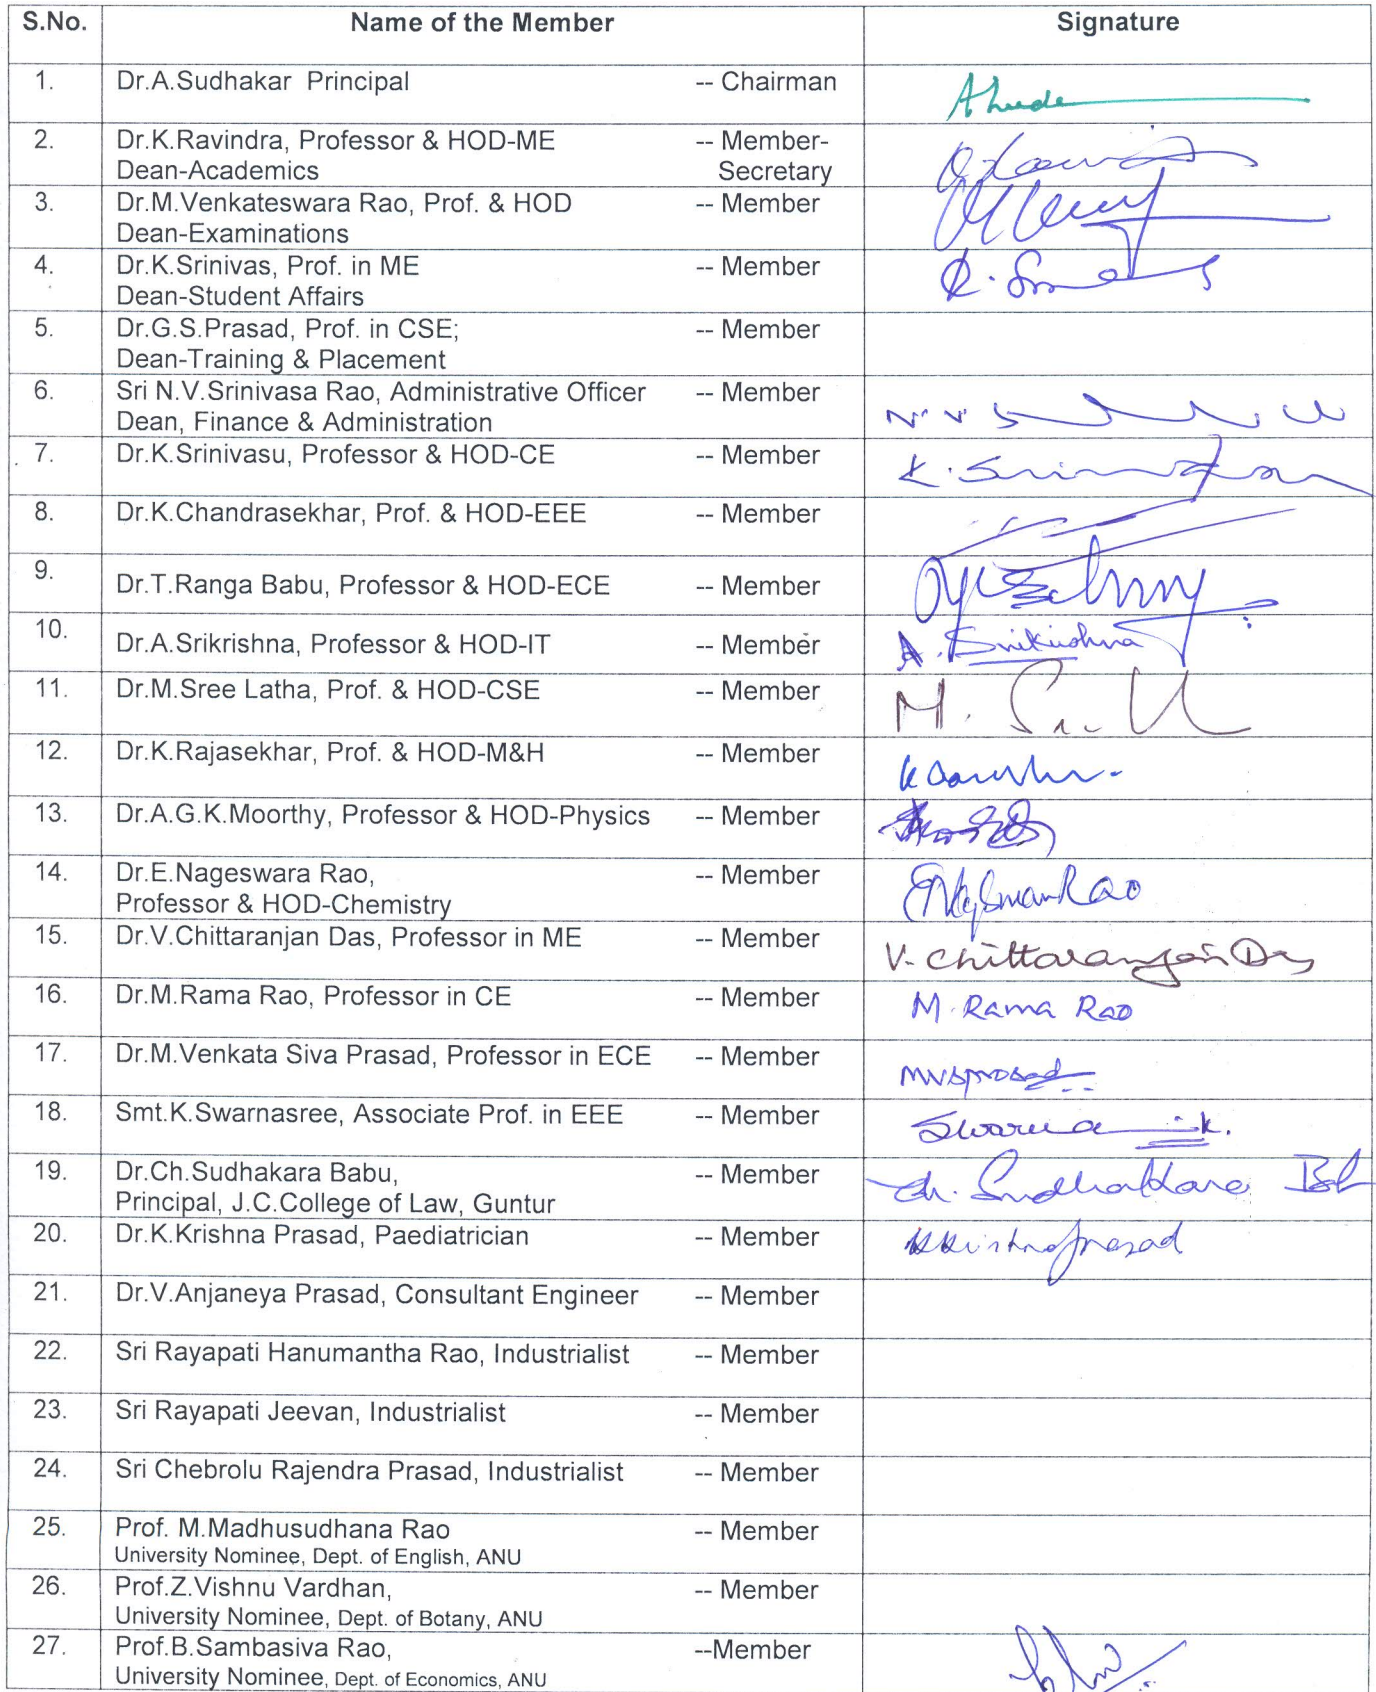 S.No. Name of the Member Signature
1. Dr.A.Sudhakar Principal -- Chairman
2. Dr.K.Ravindra, Professor & HOD-ME -- Member-
Dean-Academics Secretary
3. Dr.M.Venkateswara Rao, Prof. & HOD -- Member
Dean-Examinations
4. Dr.K.Srinivas, Prof. in ME -- Member
Dean-Student Affairs
5. Dr.G.S.Prasad, Prof. in CSE; -- Member
Dean-Training & Placement
6. Sri N.V.Srinivasa Rao, Administrative Officer -- Member
Dean, Finance & Administration
7. Dr.K.Srinivasu, Professor & HOD-CE -- Member
8. Dr.K.Chandrasekhar, Prof. & HOD-EEE -- Member
9. Dr.T.Ranga Babu, Professor & HOD-ECE -- Member
10. Dr.A.Srikrishna, Professor & HOD-IT -- Member A. Srikrishna
11. Dr.M.Sree Latha, Prof. & HOD-CSE -- Member
12. Dr.K.Rajasekhar, Prof. & HOD-M&H -- Member
13. Dr.A.G.K.Moorthy, Professor & HOD-Physics -- Member
14. Dr.E.Nageswara Rao, -- Member
Professor & HOD-Chemistry
15. Dr.V.Chittaranjan Das, Professor in ME -- Member V. Chittaranjan Das
16. Dr.M.Rama Rao, Professor in CE -- Member M. Rama Rao
17. Dr.M.Venkata Siva Prasad, Professor in ECE -- Member mvsprasad
18. Smt.K.Swarnasree, Associate Prof. in EEE -- Member Swarna K.
19. Dr.Ch.Sudhakara Babu, -- Member Ch. Sudhakara
Principal, J.C.College of Law, Guntur
20. Dr.K.Krishna Prasad, Paediatrician -- Member KKrishnaprasad
21. Dr.V.Anjaneya Prasad, Consultant Engineer -- Member
22. Sri Rayapati Hanumantha Rao, Industrialist -- Member
23. Sri Rayapati Jeevan, Industrialist -- Member
24. Sri Chebrolu Rajendra Prasad, Industrialist -- Member
25. Prof. M.Madhusudhana Rao -- Member
University Nominee, Dept. of English, ANU
26. Prof.Z.Vishnu Vardhan, -- Member
University Nominee, Dept. of Botany, ANU
27. Prof.B.Sambasiva Rao, --Member
University Nominee, Dept. of Economics, ANU